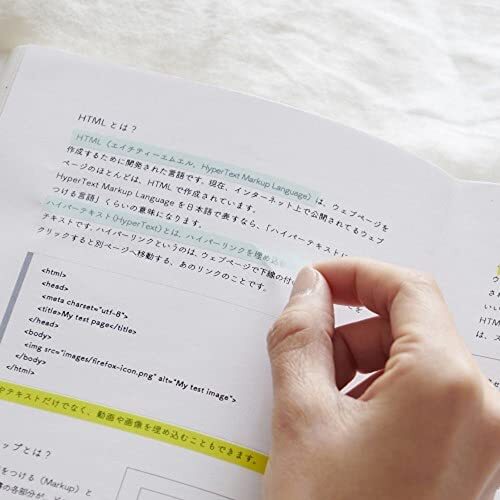 HTMLとは？
HTML（エイチティーエムエル、HyperText Markup Language）は、ウェブページを
作成するために開発された言語です。現在、インターネット上で公開されてるウェブ
ページのほとんどは、HTMLで作成されています。
HyperText Markup Languageを日本語で表すなら、「ハイパーテキストに
つける言語」くらいの意味になります。
ハイパーテキスト(HyperText)とは、ハイパーリンクを埋め込む
テキストです。ハイパーリンクというのは、ウェブページで下線の付い
クリックすると別ページへ移動する、あのリンクのことです。
<html>
<head>
<meta charset="utf-8">
<title>My test page</title>
</head>
<body>
<img src="images/firefox-icon.png" alt="My test image">
</body>
</html>
やテキストだけでなく、動画や画像を埋め込むこともできます。
ップとは？
をつける（Markup）と
の各部分が、
HTM
は、ス